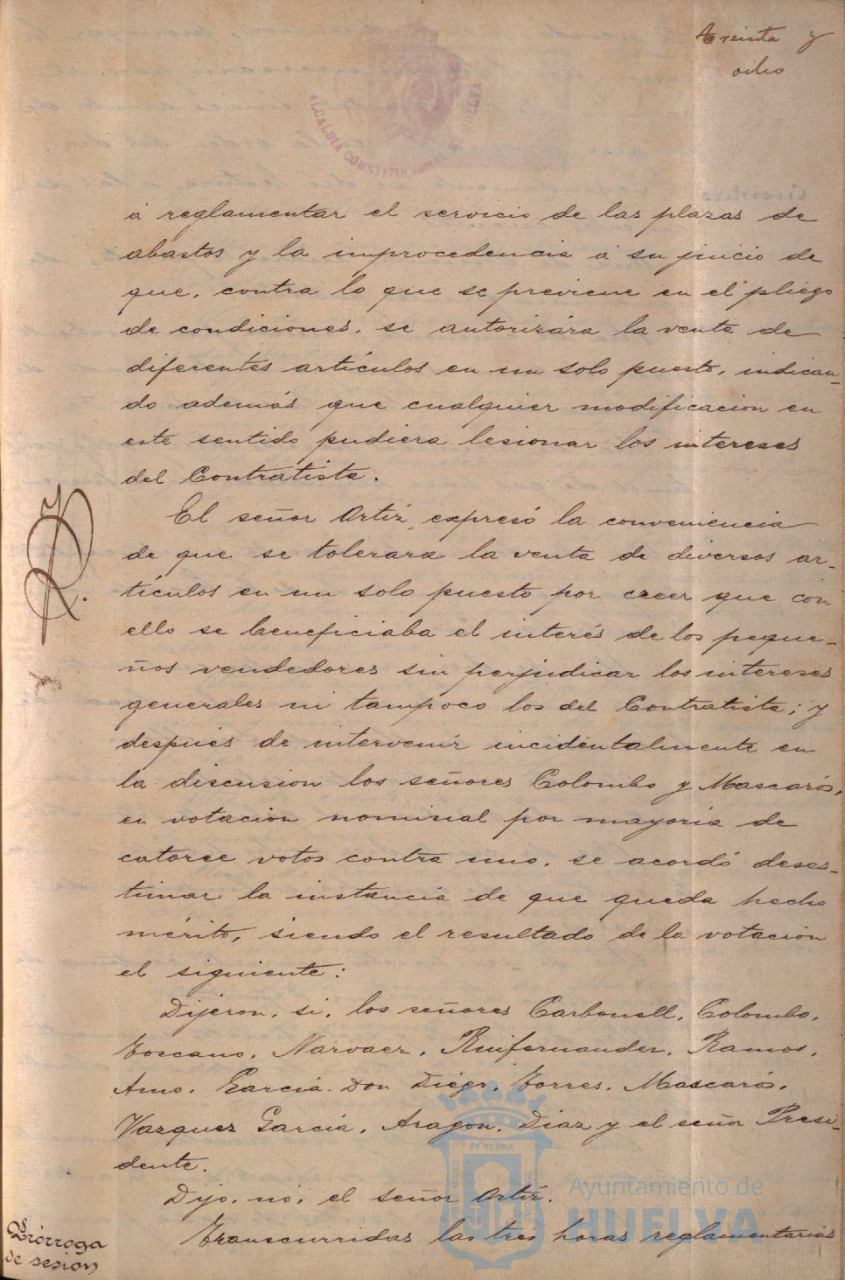 Treinta y
ocho
ALCALDIA CONSTITUCIONAL DE HUELVA
á reglamentar el servicio de las plazas de
abastos y la improcedencia á su juicio de
que, contra lo que se previene en el pliego
de condiciones, se autorizára la venta de
diferentes artículos en un solo puesto, indican-
do además que cualquier modificacion en
este sentido pudiera lesionar los intereses
del Contratista.
El señor Ortíz, expresó la conveniencia
de que se tolerara la venta de diversos ar-
tículos en un solo puesto por creer que con
ello se beneficiaba el interés de los peque-
ños vendedores sin perjudicar los intereses
generales ni tampoco los del Contratista; y
después de intervenir incidentalmente en
la discusion los señores Colombo y Mascarós,
en votacion nominal por mayoría de
catorce votos contra uno, se acordó deses-
timar la instancia de que queda hecho
mérito, siendo el resultado de la votacion
el siguiente:
Dijeron, si, los señores Carbonell, Colombo,
Toscano, Narvaez, Ruifernandez, Ramos,
Amo, García Don Diego, Torres, Mascarós,
Vazquez García, Aragon, Díaz y el señor Presi-
dente.
Dijo, nó, el señor Ortíz.
Prórroga
de sesion
Transcurridas las tres horas reglamentarias
Ayuntamiento de
HUELVA